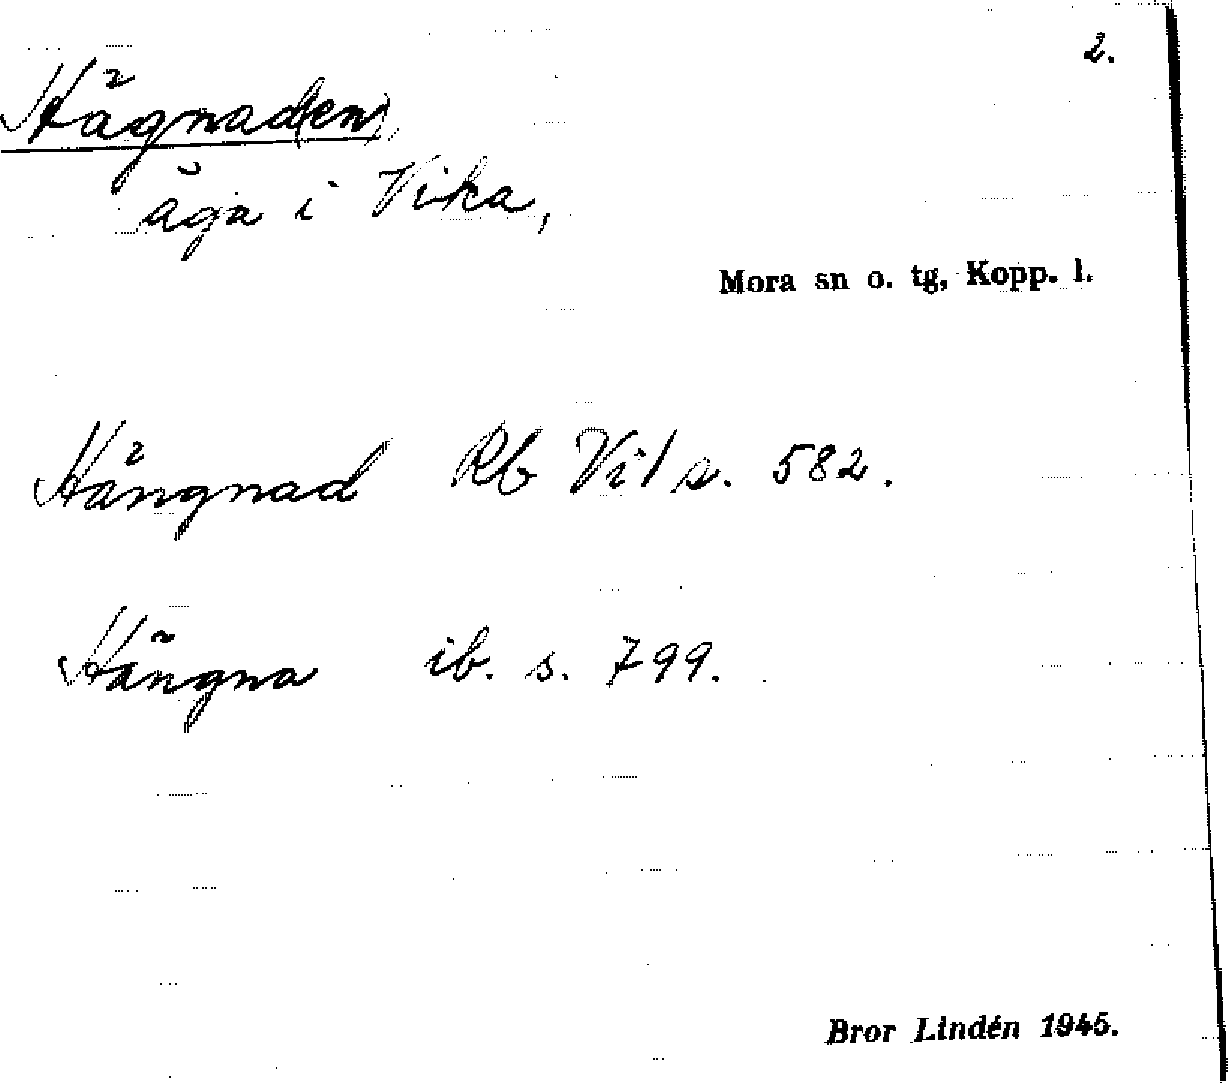 2.
Hägnad(en),
äga i Vika,
Mora sn o. tg, Kopp. l.
Hängnad Rb Vi1 s. 582.
Hängna ib. s. 799.
Bror Lindén 1945.